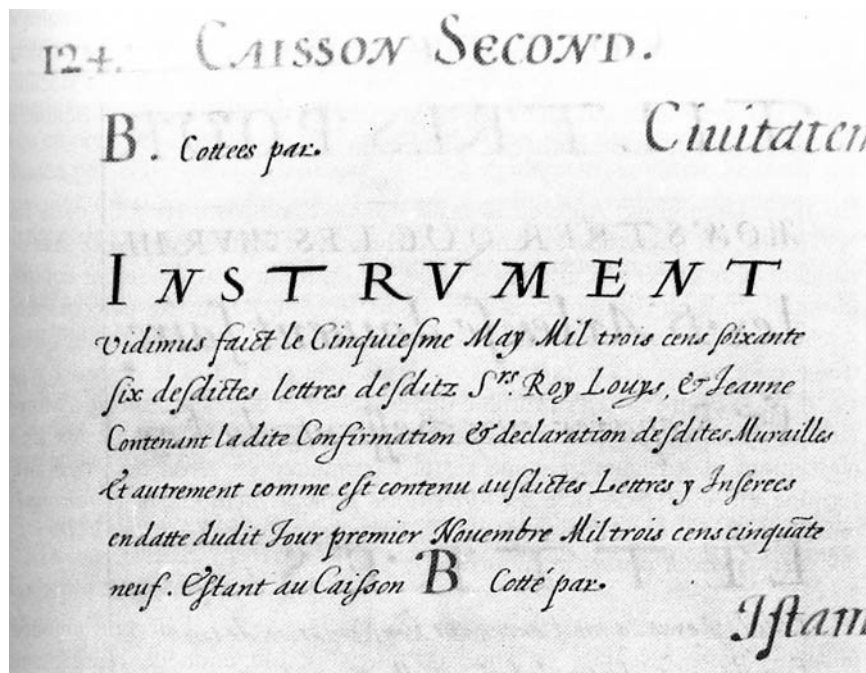 124. CAISSON SECOND.
B. Cottees par. Ciuitatem
INSTRVMENT
vidimus faict le Cinquiesme May Mil trois cens soixante
six desdictes lettres desditz Srs. Roy Louys, & Jeanne
Contenant ladite Confirmation & declaration desdites Murailles
Et autrement comme est contenu ausdictes Lettres y Inserees
en datte dudit Jour premier Nouembre Mil trois cens cinquāte
neuf. Estant au Caisson B Cotté par.
Istam